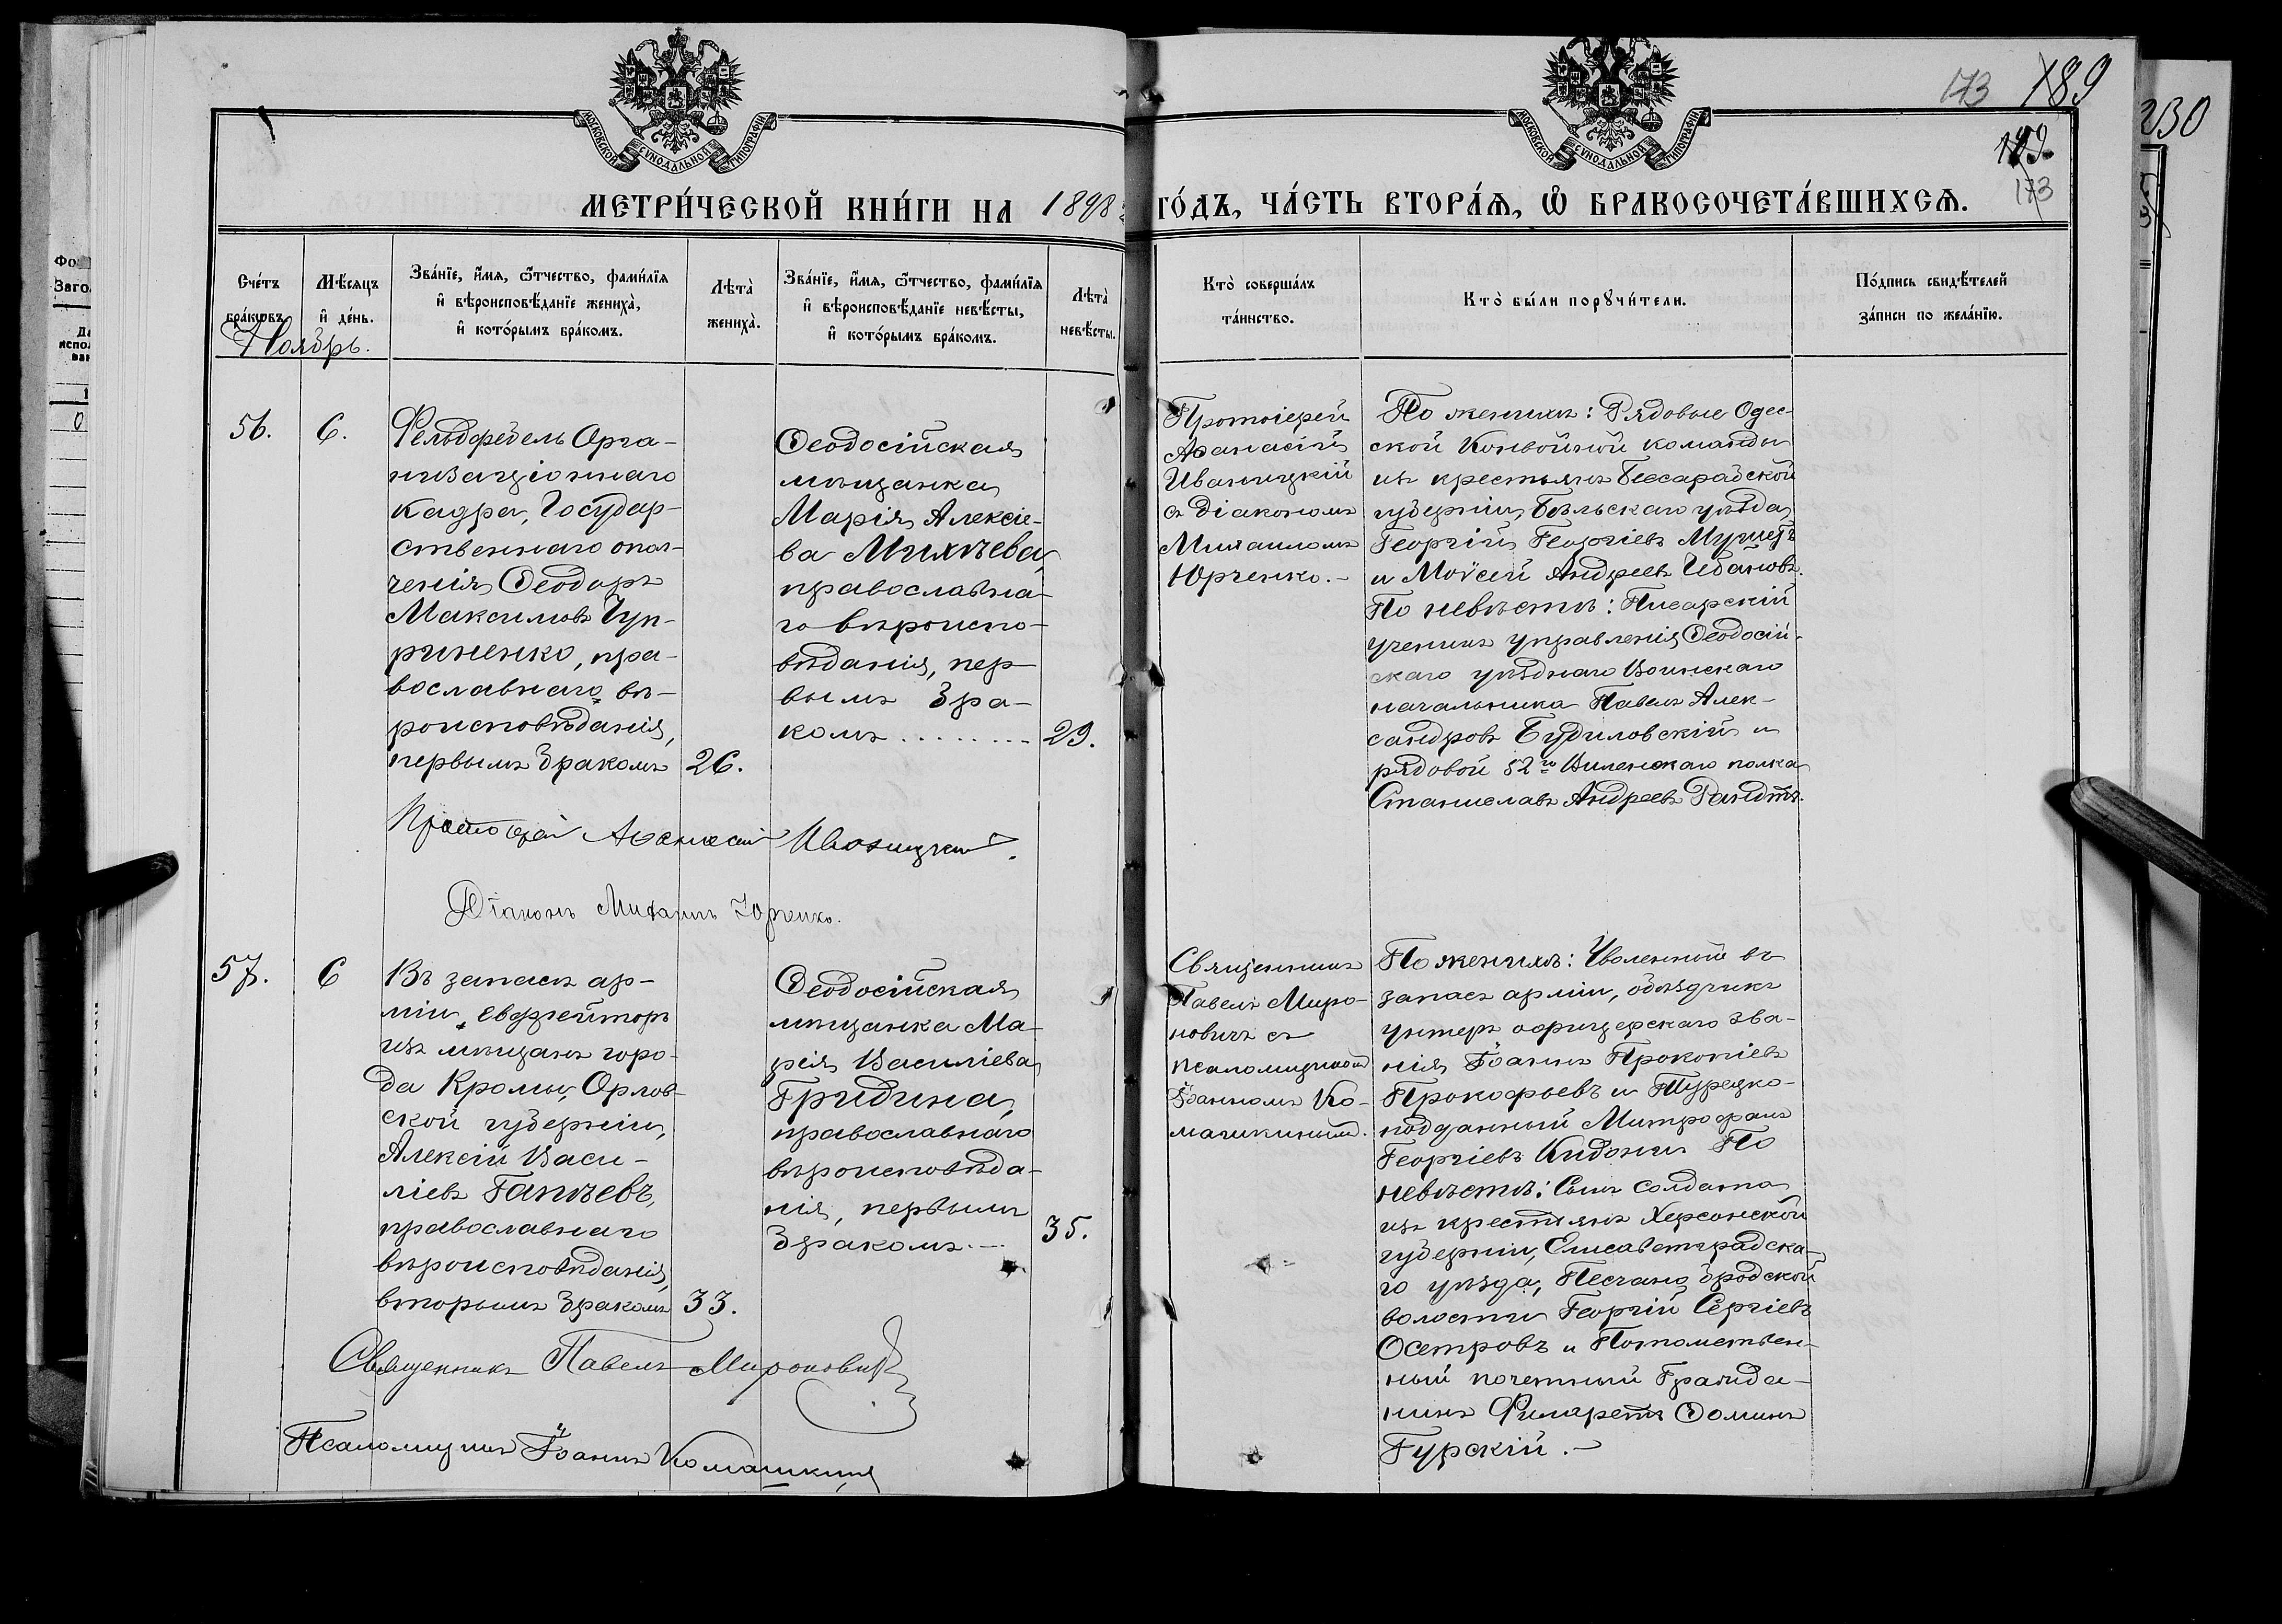 173 189
230
МОСКОВСКОЙ СѴНОДАЛЬНОЙ ТИПОГРАФІИ
МОСКОВСКОЙ СѴНОДАЛЬНОЙ ТИПОГРАФІИ
173
МЕТРИ́ЧЕСКОЙ КНИ́ГИ НА 1898
ГО́ДЪ, ЧА́СТЬ ВТОРА́Ѧ, Ѡ҆ БРАКОСОЧЕТА́ВШИХСѦ.
Сче́тъ
бра́кѡвъ.
Мѣ́сяцъ
и҆ де́нь.
Зва́нїе, и҆́мѧ, ѻ҆́тчество, фами́лїѧ
и҆ вѣроисповѣ́данїе жениха̀,
и҆ кото́рымъ бра́комъ.
Лѣта̀
жениха̀.
Зва́нїе, и҆́мѧ, ѻ҆́тчество, фами́лїѧ
и҆ вѣроисповѣ́данїе невѣ́сты,
и҆ кото́рымъ бра́комъ.
Лѣта̀
невѣ́сты.
Кто̀ соверша́лъ
та́инство.
Кто̀ бы́ли порꙋчи́тели.
По́дпись свидѣ́телей
за́писи по жела́нїю.
Ноябрь.
56.
6.
Фельдфебель Орга-
низаціоннаго
кадра, Государ-
ственнаго опол-
ченія Ѳеодоръ
Максимовъ Чуп-
риненко, пра-
вославнаго вѣ-
роисповѣданія,
первымъ бракомъ
26.
Ѳеодосійская
мѣщанка
Марія Алексіе-
ва Михѣева,
православна-
го вѣроиспо-
вѣданія, пер-
вымъ бра-
комъ ........
29.
Протоіерей
Аѳанасій
Иваницкій
съ діакономъ
Михаиломъ
Юрченко.-
По женихѣ: Рядовые Одес-
ской Конвойной команды
изъ крестьянъ Бессарабской
губерніи, Бѣльскаго уѣзда,
Георгій Георгіевъ
и Моѵсей Андреевъ
По невѣстѣ: Писарскій
ученикъ управленія Ѳеодосій-
скаго уѣзднаго Воинскаго
начальника Павелъ Алек-
сандровъ Будиловскій и
рядовой 52го Виленскаго полка
Станиславъ Андреевъ Рандтъ.
Протоіерей Аѳанасій Иваницкій.
Діаконъ Михаилъ Юрченко.
57.
6
Въ запасѣ ар-
міи, Ефрейторъ
изъ мѣщанъ горо-
да Кромы, Орлов-
ской губерніи,
Алексій Васи-
ліевъ Гапѣевъ,
православнаго
вѣроисповѣданія,
вторымъ бракомъ
33.
Ѳеодосійская
мѣщанка Ма-
рія Василіева
Гридина,
православнаго
вѣроисповѣда-
нія, первымъ
бракомъ.-
35.
Священникъ
Павелъ Миро-
новичъ съ
псаломщикомъ
Іоанномъ Ко-
машкинымъ.
По женихѣ: Уволенный въ
запасъ арміи, объѣздчикъ
унтеръ офицерскаго зва-
нія Іоаннъ Прокопіевъ
Прокофьевъ и Турецко-
подданный Митрофанъ
Георгіевъ Кидони По
невѣстѣ: Сынъ солдата
изъ крестьянъ Херсонской
губерніи, Елисаветградска-
го уѣзда, Песчано бродской
волости Георгій Сергіевъ
Осетровъ и Потомствен-
ный почетный Гражда-
нинъ Филаретъ Ѳоминъ
Гурскій.-
Священникъ Павелъ Мироновичъ
Псаломщикъ Іоаннъ Комашкинъ